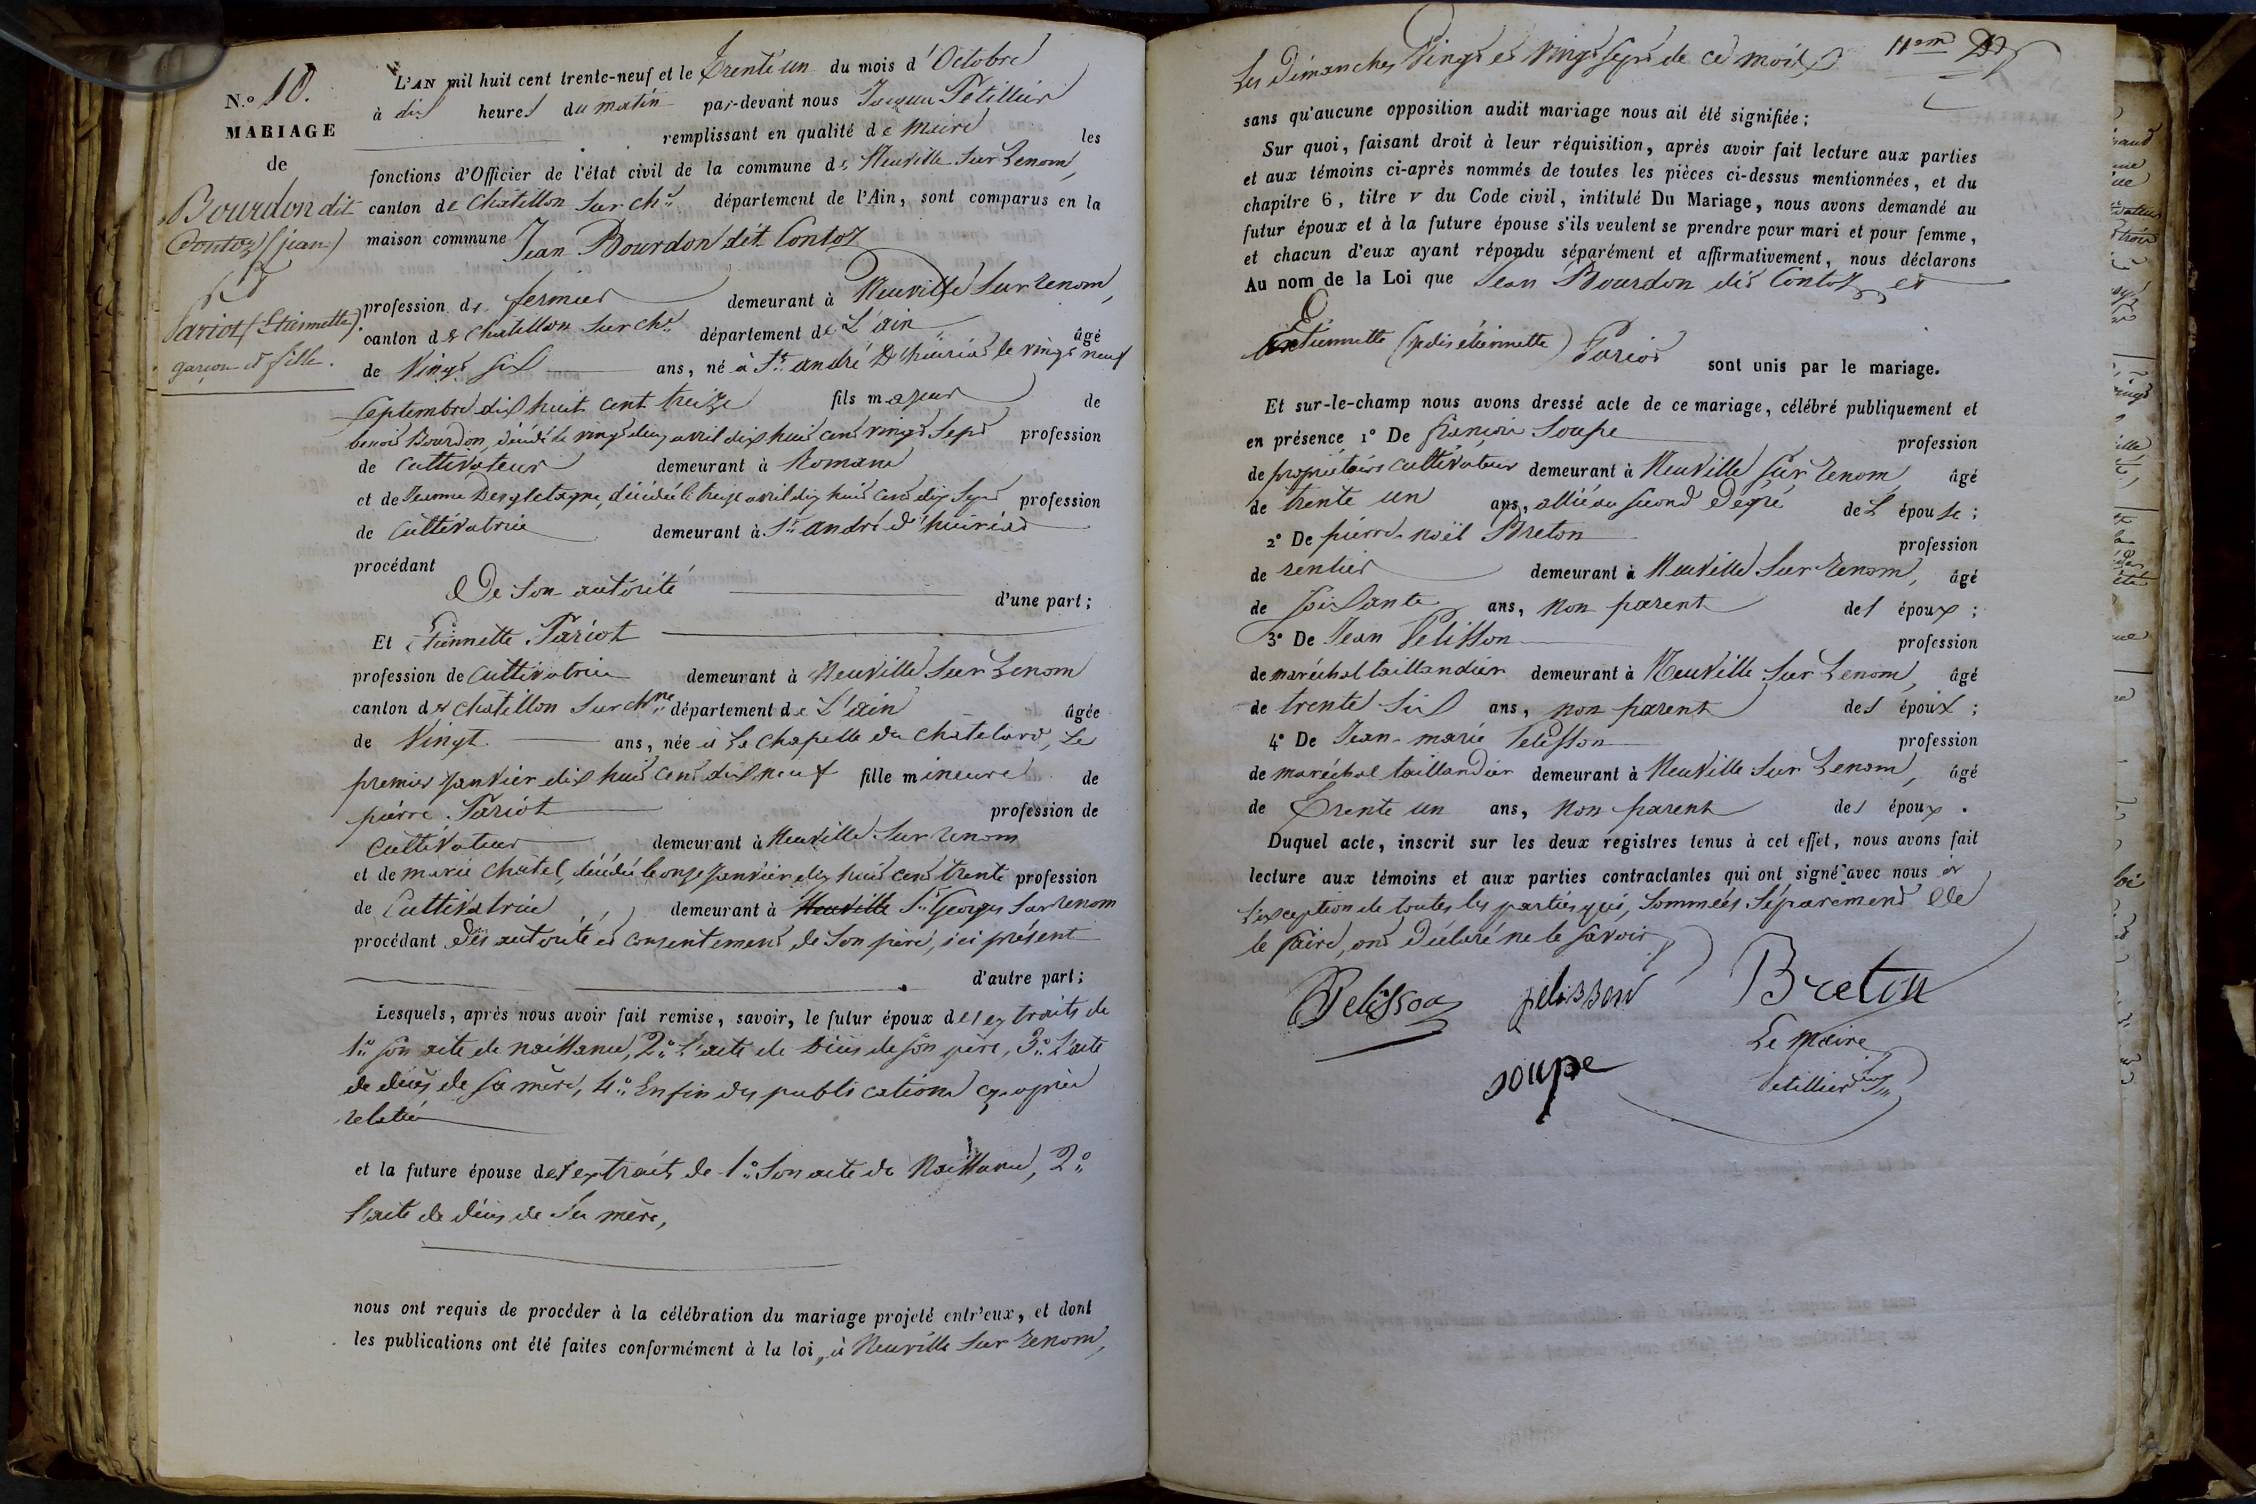 N.o 10.
MARIAGE
de
Bourdon dit
Contoz (jean)
&
Pariot (Etiennette)
garçon et fille.
L'AN mil huit cent trente-neuf et le Trente un du mois d'Octobre
à dix heures du matin par-devant nous Jacques Petillier
remplissant en qualité de Maire les
fonctions d'Officier de l'état civil de la commune de Neuville sur Renom,
canton de Chatillon sur Chne département de l'Ain, sont comparus en la
maison commune Jean Bourdon dit Contoz
profession de fermier demeurant à Neuville sur renom,
canton de Chatillon sur Chne département de L'ain âgé
de Vingt six ans, né à St. andré D'huiriat le vingt neuf
septembre dix huit cent treize fils majeur de
benoit Bourdon, décédé le vingt deux avril dix huit cent vingt sept profession
de Cultivateur demeurant à Romans
et de Jeanne , décédée le treize avril dix huit cent dix sept profession
de Cultivatrice demeurant à St. andré d'huiriat
procédant
De son autorité d'une part;
Et Etiennette Pariot
profession de Cultivatrice demeurant à Neuville sur Renom
canton de Chatillon sur Chne département de L'ain âgée
de Vingt ans, née à La Chapelle du Chatelard, Le
premier Janvier dix huit cent dix neuf fille mineure de
pierre Pariot profession de
Cultivateur demeurant à Neuville sur renom
et de marie Chatel, décédée le onze Janvier dix huit cent trente profession
de Cultivatrice demeurant à Neuville St. Georges sur renom
procédant des autorité et consentement de son père, ici présent
d'autre part;
Lesquels, après nous avoir fait remise, savoir, le futur époux des extraits de
1.o son acte de naissance, 2.o L'acte de décès de son père, 3.o L'acte
de décès de sa mère, 4.o Enfin des publications cy-après
relatées
et la future épouse des extraits de 1.o son acte de Naissance, 2.o
l'acte de décès de sa mère,
nous ont requis de procéder à la célébration du mariage projeté entr'eux, et dont
les publications ont été faites conformément à la loi, à Neuville sur renom,
Les Dimanches Vingt et vingt sept de ce mois 11em
sans qu'aucune opposition audit mariage nous ait été signifiée;
Sur quoi, faisant droit à leur réquisition, après avoir fait lecture aux parties
et aux témoins ci-après nommés de toutes les pièces ci-dessus mentionnées, et du
chapitre 6, titre v du Code civil, intitulé Du Mariage, nous avons demandé au
futur époux et à la future épouse s'ils veulent se prendre pour mari et pour femme,
et chacun d'eux ayant répondu séparément et affirmativement, nous déclarons
Au nom de la Loi que Jean Bourdon dit Contoz et
Etiennette (je dis étiennette) Pariot sont unis par le mariage.
Et sur-le-champ nous avons dressé acte de ce mariage, célébré publiquement et
en présence 1° De françois Soupe profession
de propriétaire cultivateur demeurant à Neuville sur renom âgé
de trente un ans, allié au second Degré de L'épouse;
2° De pierre-noël Breton profession
de rentier demeurant à Neuville sur Renom, âgé
de soixante ans, Non parent des époux;
3° De Jean Pelisson profession
de maréchal taillandier demeurant à Neuville sur Renom, âgé
de trente six ans, non parent des époux;
4° De Jean-marie Pelisson profession
de maréchal taillandier demeurant à Neuville sur Renom, âgé
de Trente un ans, Non parent des époux.
Duquel acte, inscrit sur les deux registres tenus à cet effet, nous avons fait
lecture aux témoins et aux parties contractantes qui ont signé avec nous à
l'exception de toutes les parties qui, sommées séparément De
le faire, ont Déclaré ne le savoir
Pelisson pelisson Breton
Le Maire
soupe Petillier